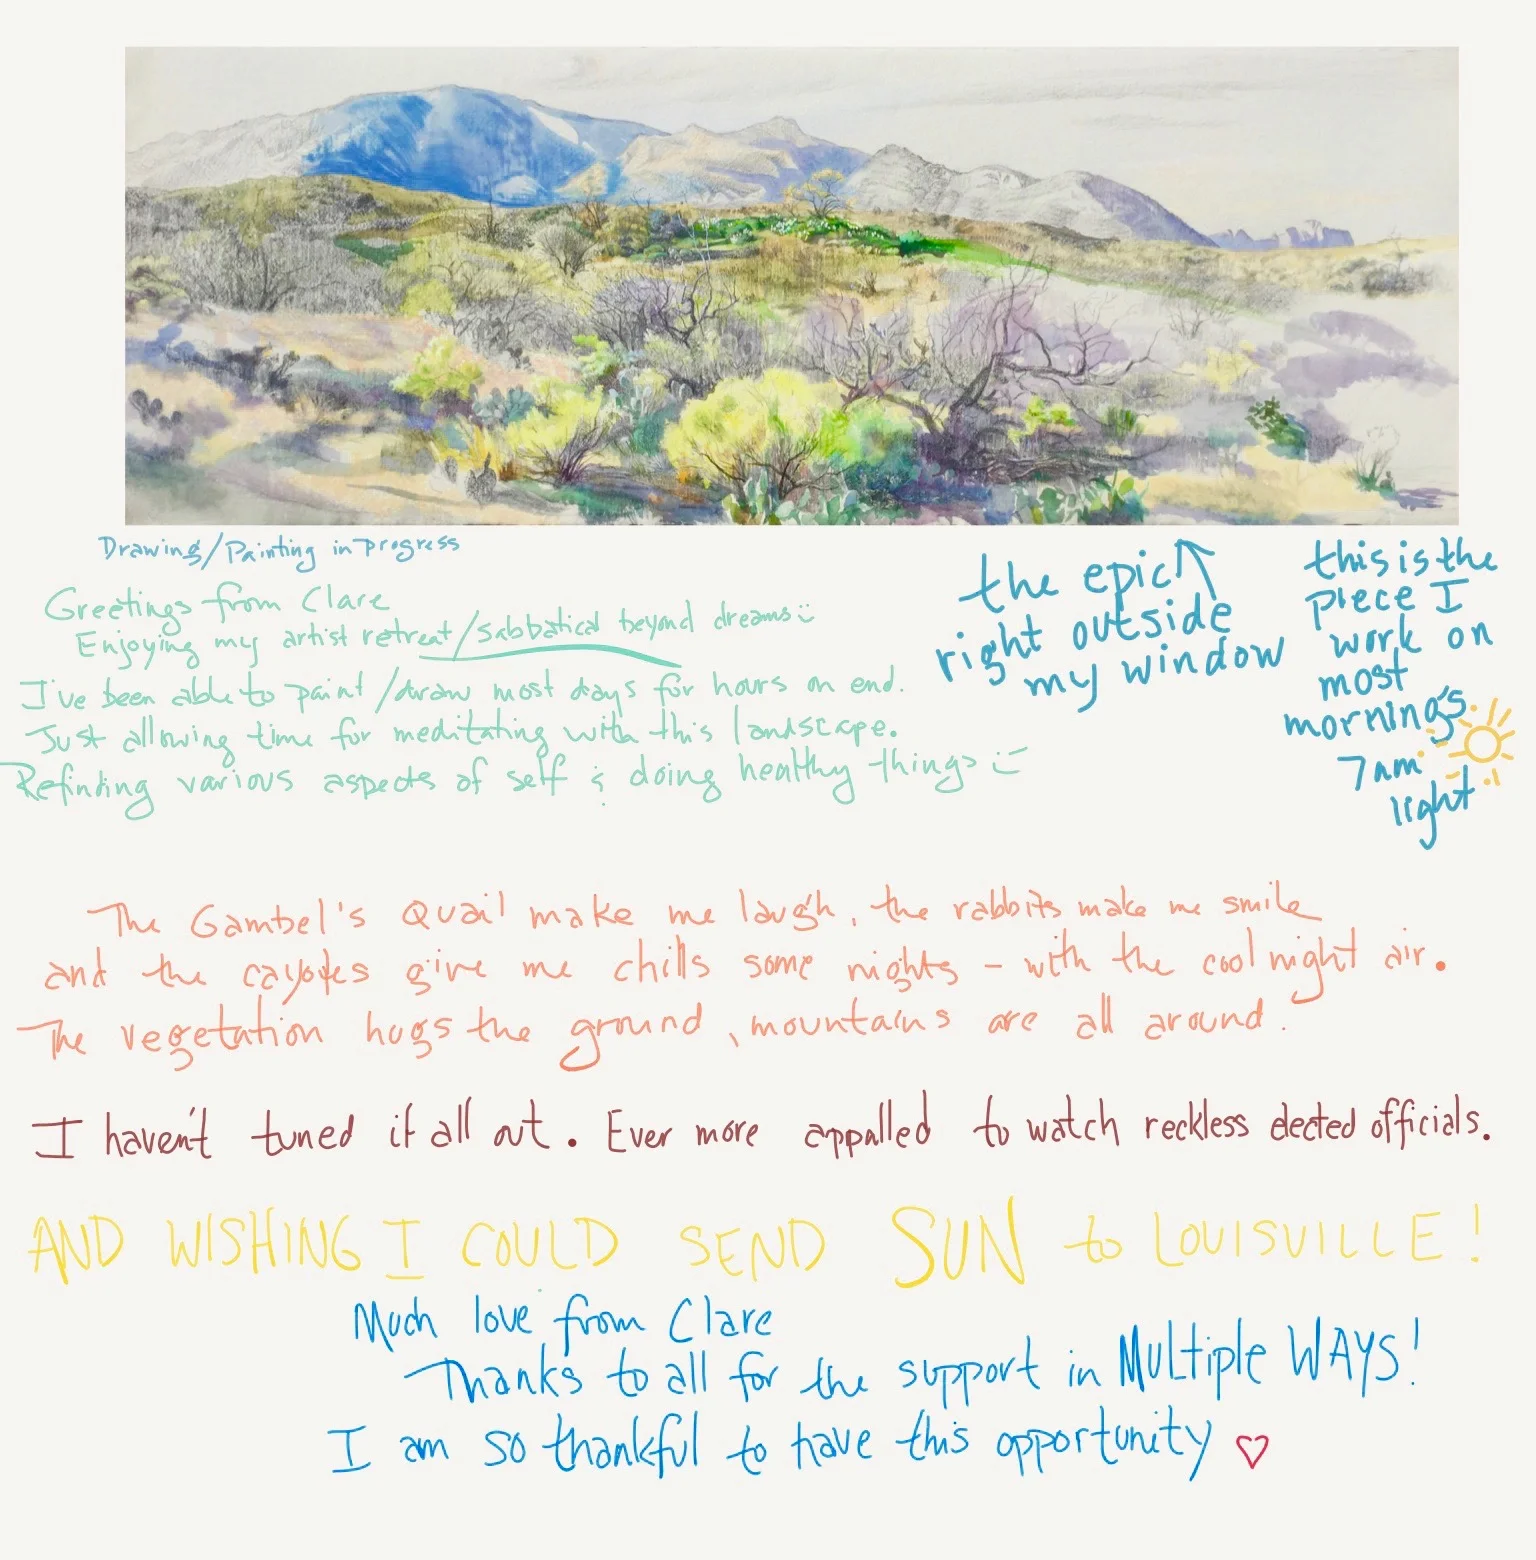 Drawing/Painting in progress
Greetings from Clare
Enjoying my artist retreat/sabbatical beyond dreams :)
I've been able to paint/draw most days for hours on end.
Just allowing time for meditating with this landscape.
Refinding various aspects of self & doing healthy things :)
the epic
right outside
my window
this is the
piece I
work on
most
mornings
7am
light
The Gambel's Quail make me laugh, the rabbits make me smile
and the cayotes give me chills some nights - with the cool night air.
The vegetation hugs the ground, mountains are all around.
I haven't tuned it all out. Ever more appalled to watch reckless elected officials.
AND WISHING I COULD SEND SUN to LOUISVILLE!
Much love from Clare
Thanks to all for the support in MULtiple WAYS!
I am so thankful to have this opportunity ♡